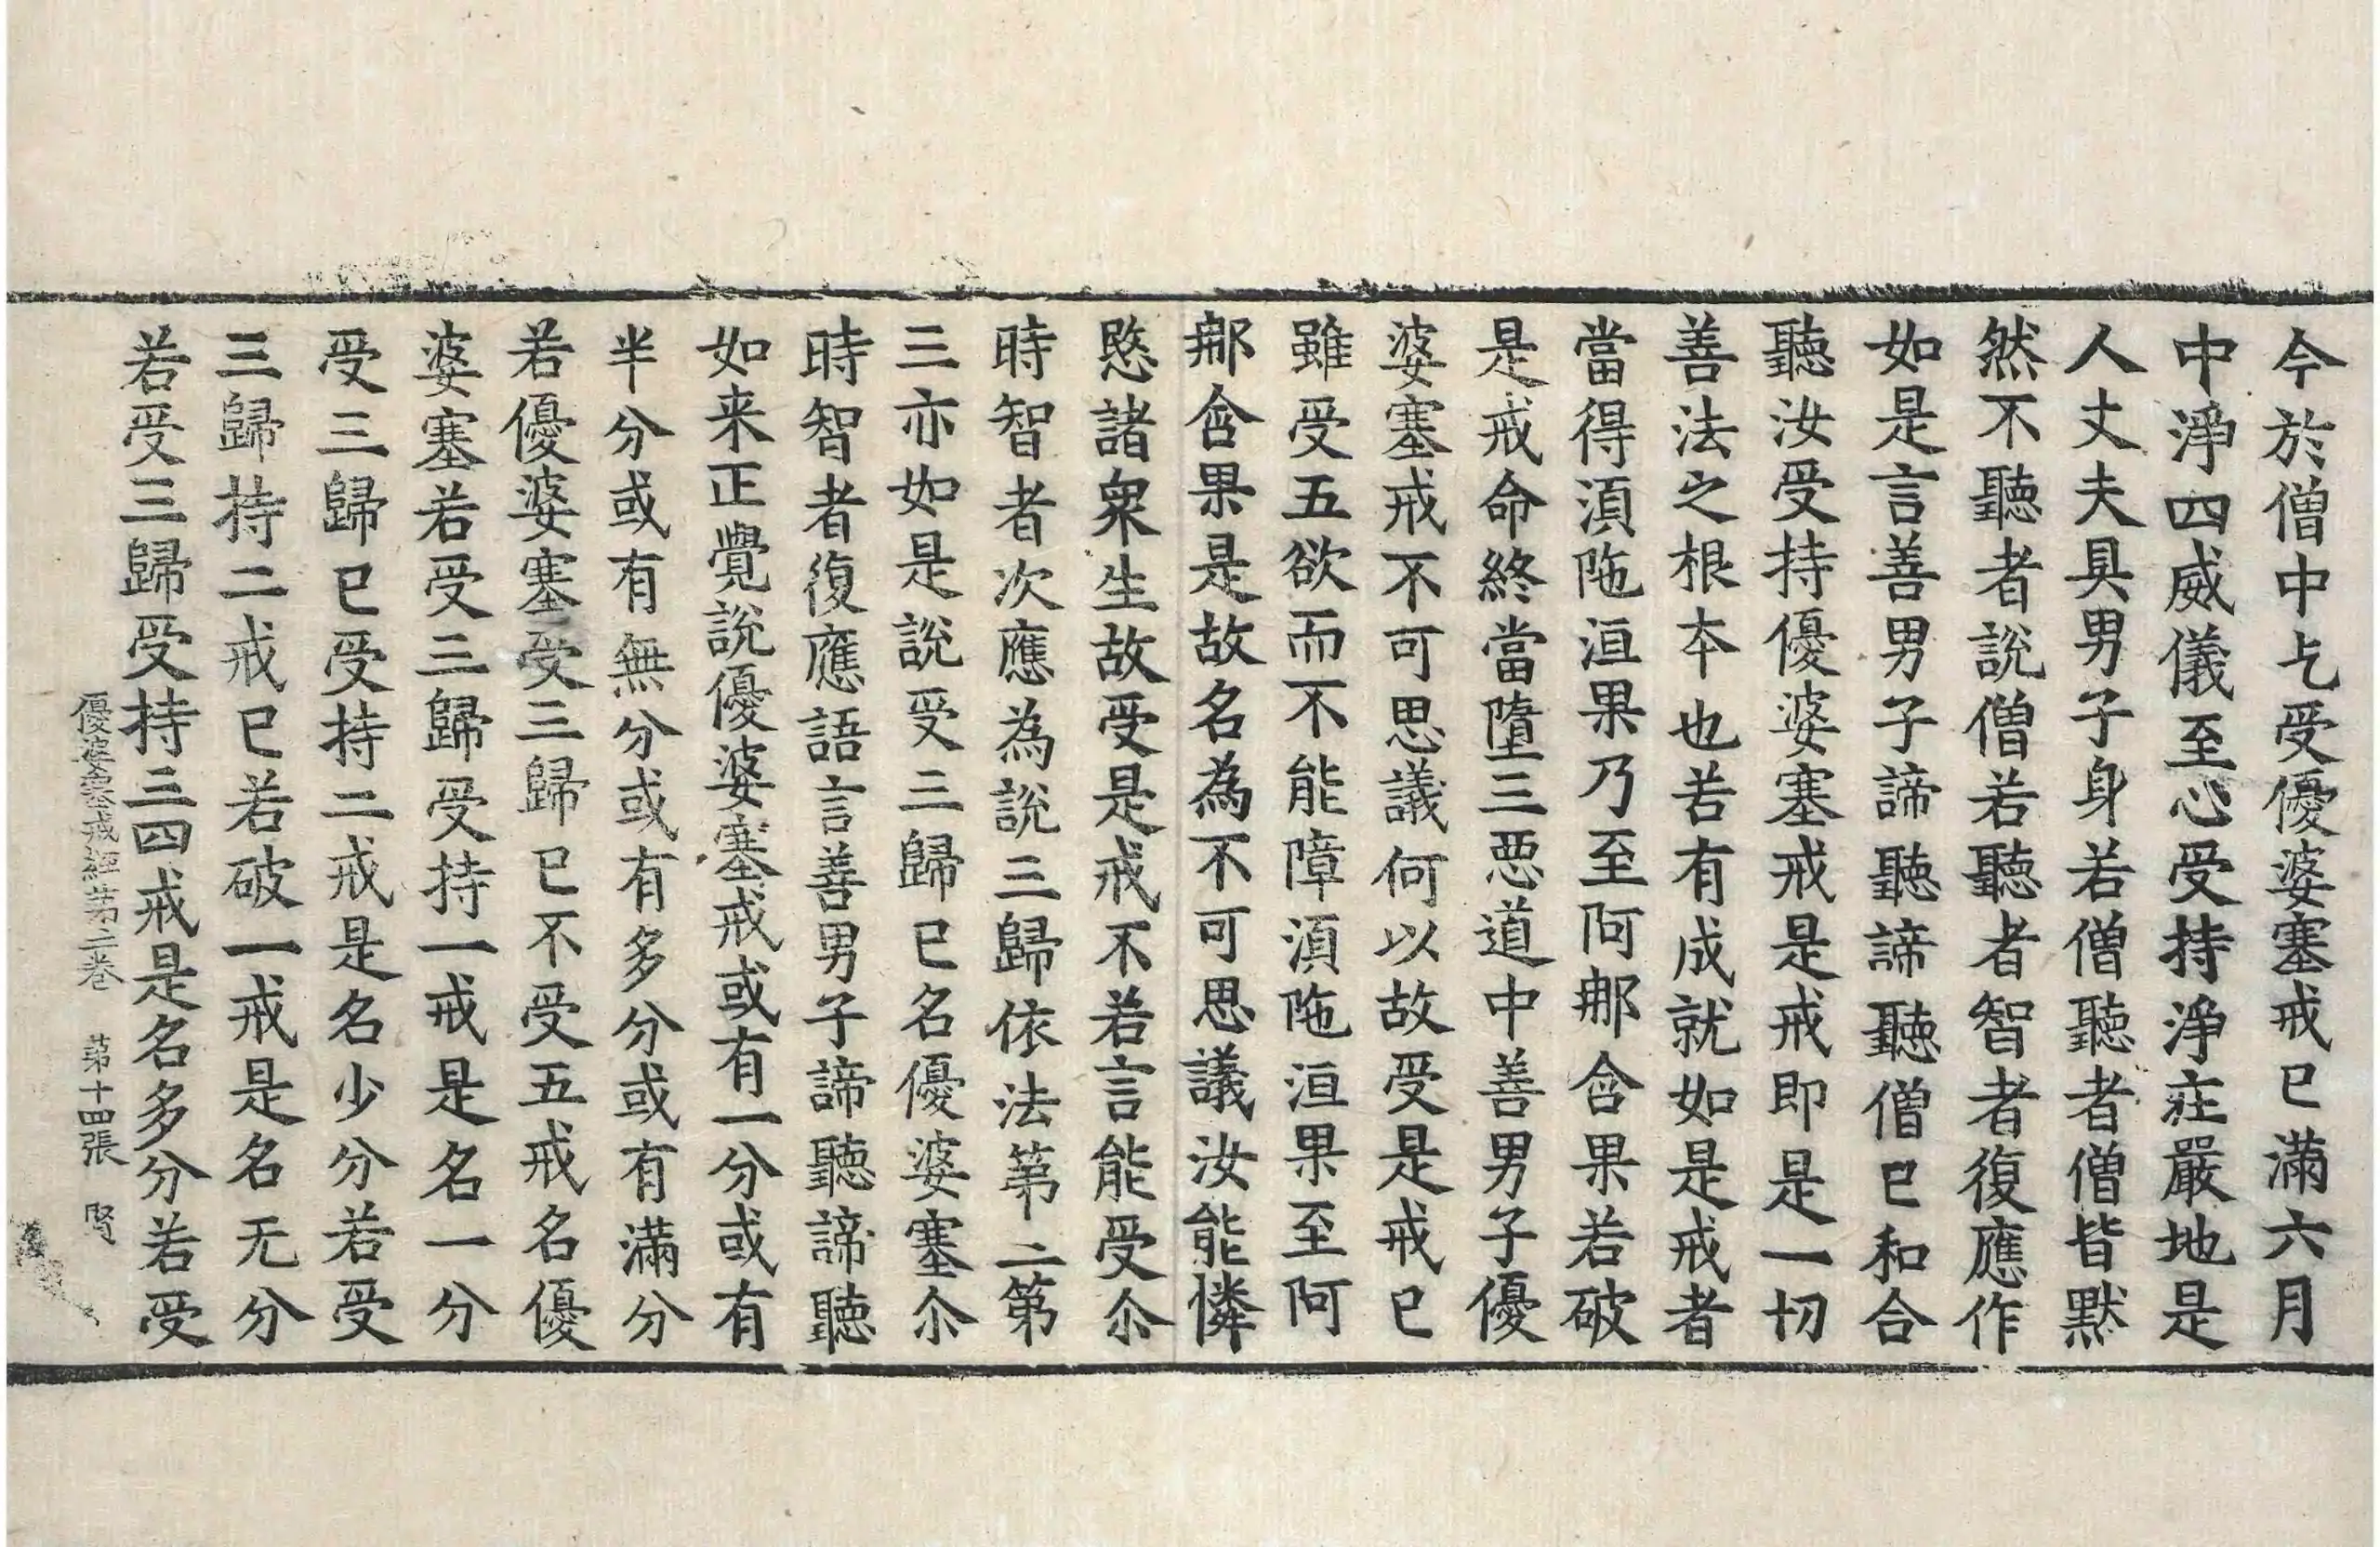 今於僧中乞受優婆塞戒已滿六月
中淨四威儀至心受持淨莊嚴地是
人丈夫具男子身若僧聽者僧皆默
然不聽者說僧若聽者智者復應作
如是言善男子諦聽諦聽僧已和合
聽汝受持優婆塞戒是戒即是一切
善法之根本也若有成就如是戒者
當得湏陁洹果乃至阿那含果若破
是戒命終當墮三惡道中善男子優
婆塞戒不可思議何以故受是戒已
雖受五欲而不能障湏陁洹果至阿
那含果是故名為不可思議汝能憐
愍諸衆生故受是戒不若言能受尒
時智者次應為說三歸依法第二第
三亦如是說受三歸已名優婆塞尒
時智者復應語言善男子諦聽諦聽
如来正覺說優婆塞戒或有一分或有
半分或有無分或有多分或有滿分
若優婆塞受三歸已不受五戒名優
婆塞若受三歸受持一戒是名一分
受三歸已受持二戒是名少分若受
三歸持二戒已若破一戒是名无分
若受三歸受持三四戒是名多分若受
優婆塞戒經第二卷　第十四張　賢